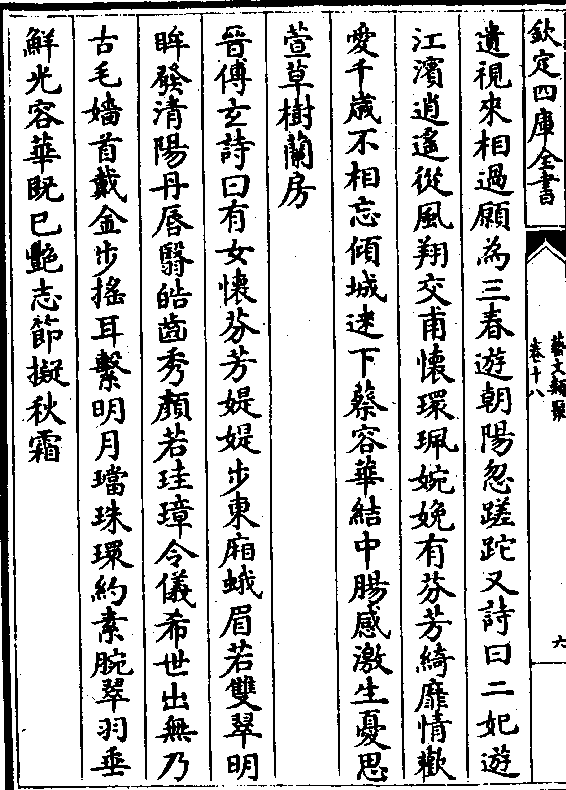 欽定四庫全書
藝文類聚
卷十八
六
遺視來相過願為三春遊朝陽忽蹉跎又詩曰二妃遊
江濱逍遙從風翔交甫懷環珮婉娩有芬芳綺靡情歡
愛千歲不相忘傾城迷下蔡容華結中腸感激生憂思
萱草樹蘭房
晉傅玄詩曰有女懷芬芳媞媞步東廂蛾眉若雙翠明
眸發清陽丹唇翳皓齒秀顏若珪璋令儀希世出無乃
古毛嬙首戴金步搖耳繫明月璫珠環約素腕翠羽垂
鮮光容華既已艷志節擬秋霜